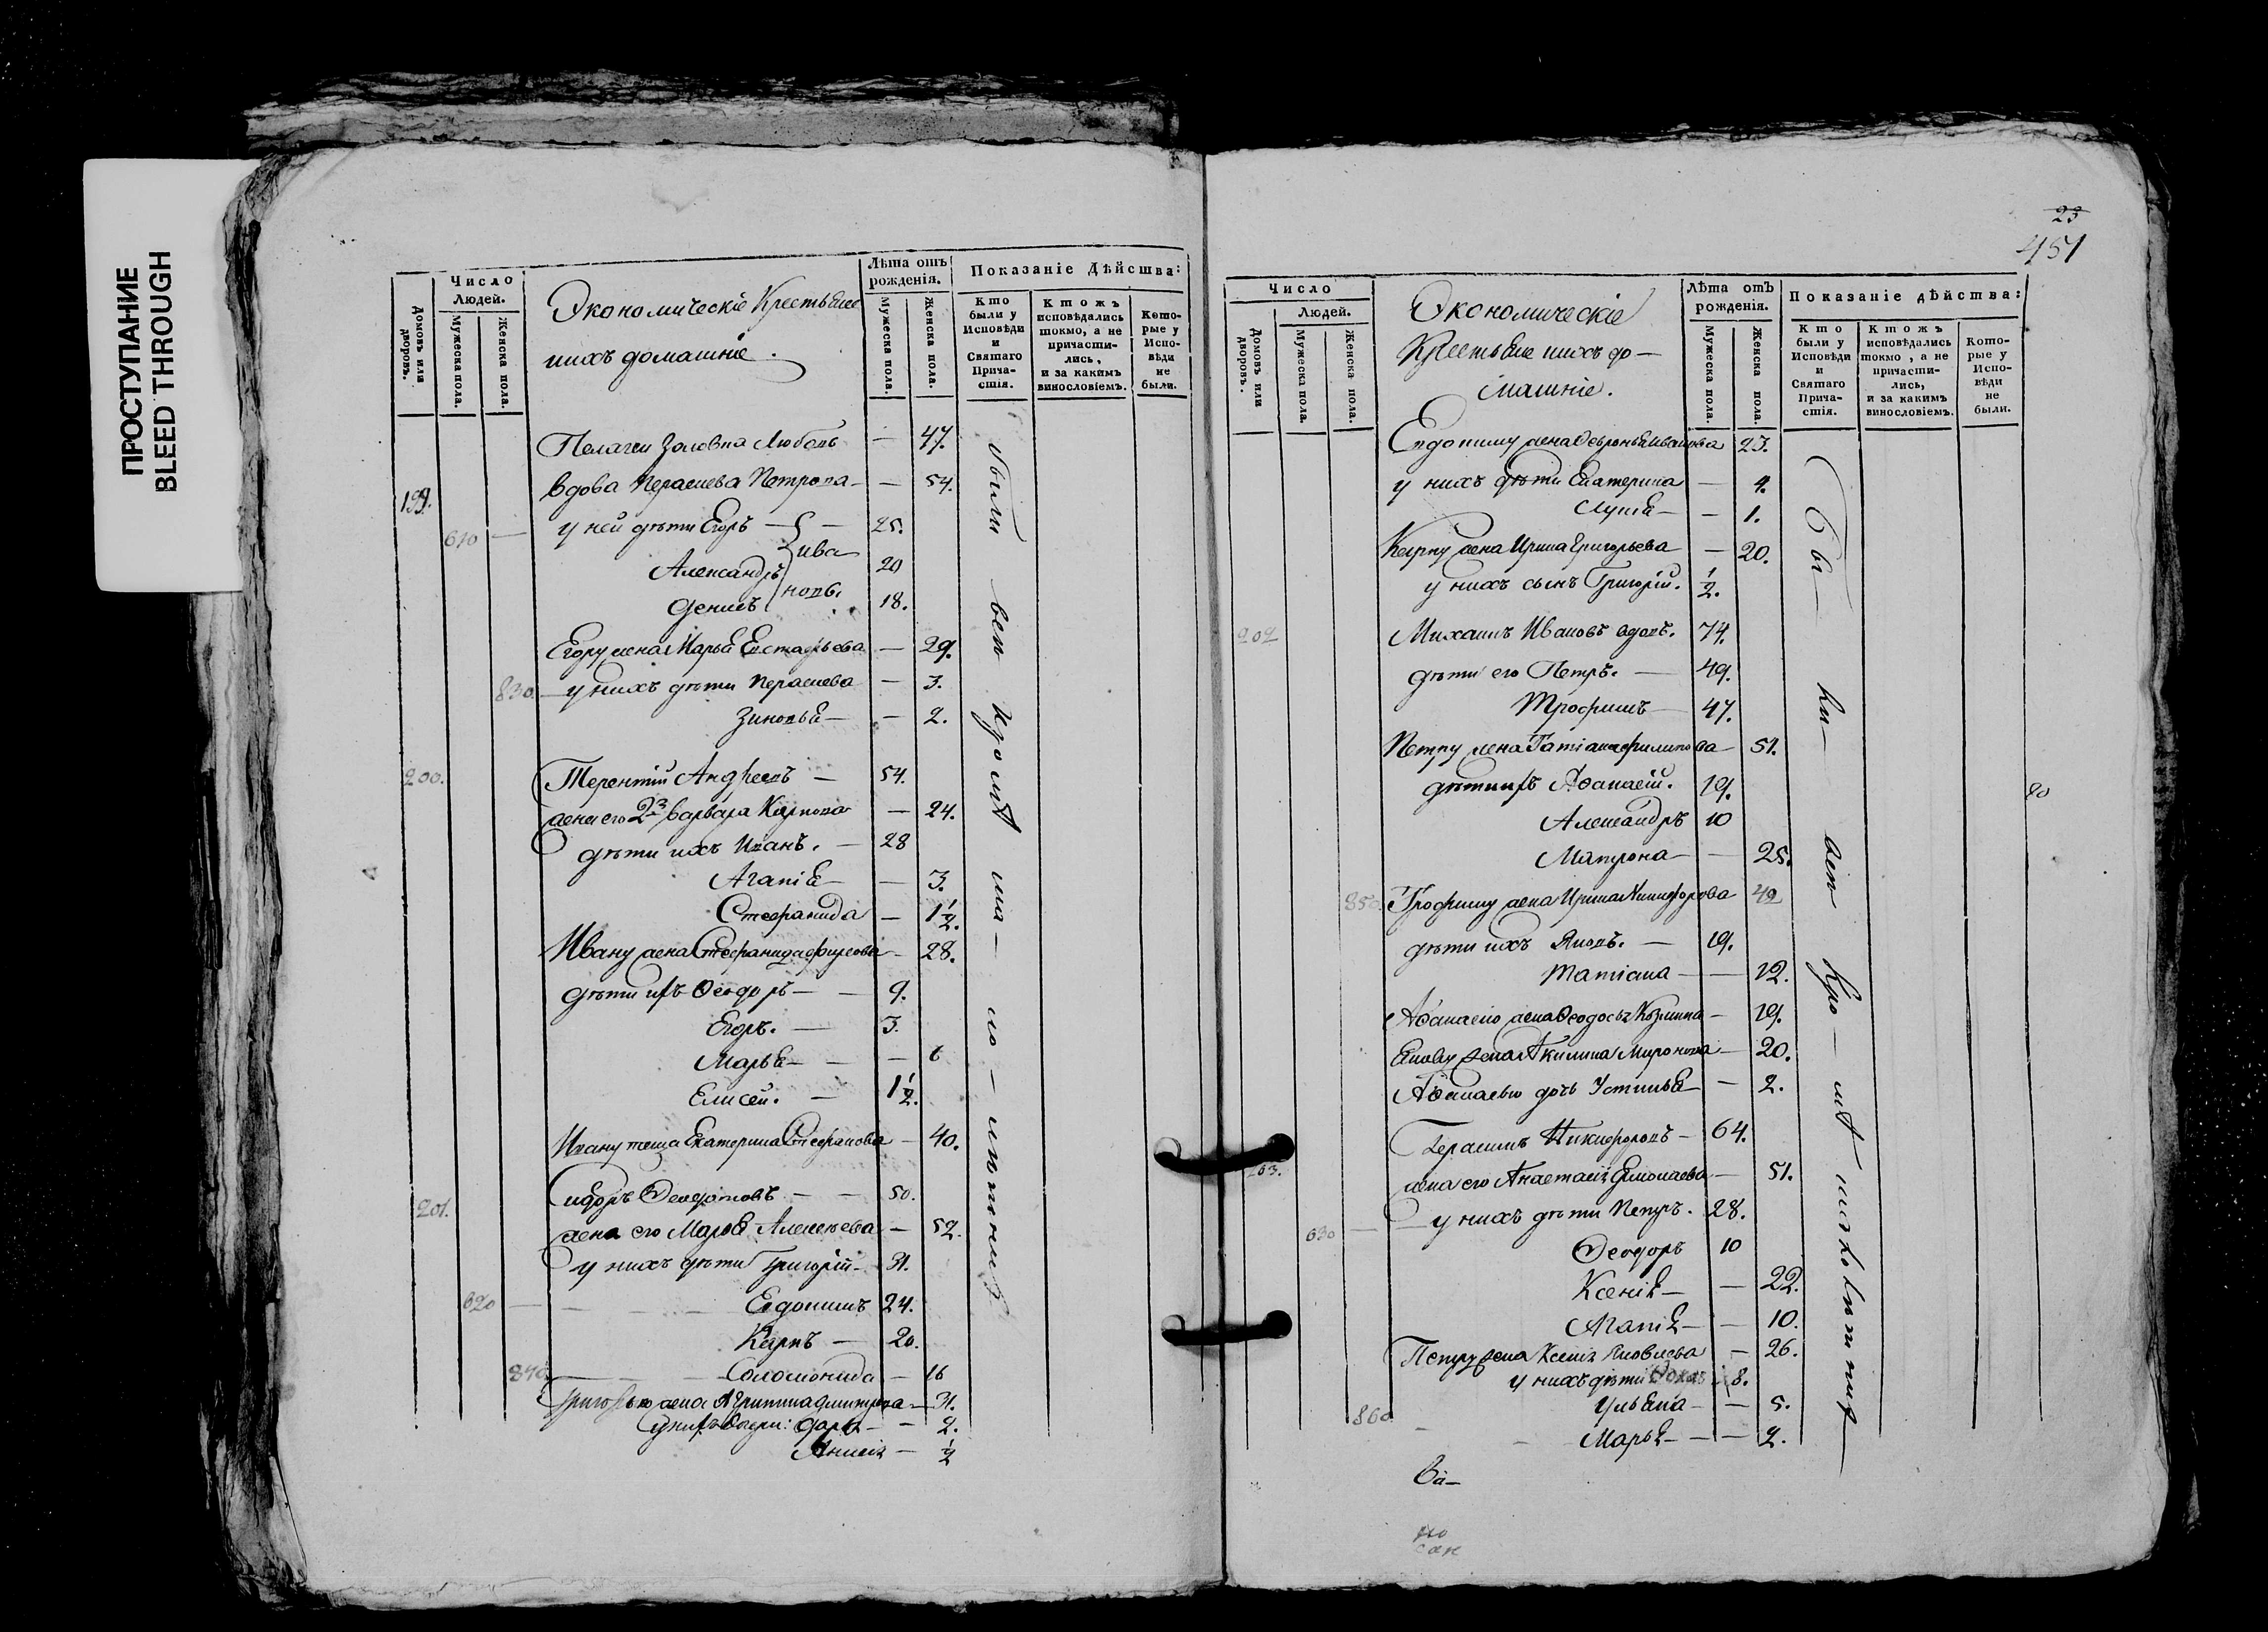 ПРОСТУПАНИЕ
BLEED THROUGH
Домовъ или дворовъ.
Число Людей.
Мужеска пола.
Женска пола.
Экономическіе Крестьяне
и ихъ домашніе.
Лѣта отъ рожденія.
Мужеска пола.
Женска пола.
Показаніе Дѣйства:
Кто были у Исповѣди и Святаго Причастія.
Ктожъ исповѣдались токмо, а не причастились, и за какимъ винословіемъ.
Которые у Исповѣди не были.
Пелагеи золовка Любовь — 47.
199. вдова Параскева Петрова — 54.
610 — у ней дѣти Егоръ — 25.
Ива
Александръ 20
новы.
Денисъ 18.
Егору жена Марья Евстафьева — 29.
830. — у нихъ дѣти Параскева — 3.
Зиновья — 2.
200. Терентій Андреевъ — 54.
жена его 2я Варвара Карпова — 24.
дѣти ихъ Иванъ. — 28
Агапія — 3.
Стефанида — 1 1/2.
Ивану жена Стефанида — 28.
дѣти ихъ Ѳеодоръ — 9.
Егоръ. — 3.
Марья — 6
Елисей. — 1 1/2.
Ивану теща Екатерина Стефанова — 40.
201. Сидоръ Ѳедотовъ — 50.
жена его Марья Алексѣева — 52.
у нихъ дѣти Григорій — 31.
620 — Евдокимъ 24.
Карпъ — 20.
840. Соломонида — 16
Григорью жена Агрипина — 31.
у нихъ дщери: Дарья — 2.
Анисія — 1/2
были всѣ кромѣ малолѣтнихъ
23
451
Домовъ или дворовъ.
Число Людей.
Мужеска пола.
Женска пола.
Экономическіе
Крестьяне и ихъ до-
машніе.
Лѣта отъ рожденія.
Мужеска пола.
Женска пола.
Показаніе дѣйства:
Кто были у Исповѣди и Святаго Причастія.
Ктожъ исповѣдались токмо, а не причастились, и за какимъ винословіемъ.
Которые у Исповѣди не были.
Евдокиму жена Ѳевронья Иванова 23.
у нихъ дѣти Екатерина — 4.
— 1.
Карпу жена Ирина Григорьева — 20.
у нихъ сынъ Григорій. 1/2.
202 Михаилъ Ивановъ вдовъ. 74.
дѣти его Петръ. — 49.
Трофимъ — 47.
Петру жена Татіана Филипова — 51.
дѣти ихъ Аѳанасій. 19.
80
Александръ 10
Матрона — 25.
850. Трофиму жена Ирина Никифорова 49
дѣти ихъ Яковъ. — 19.
Татіана — 12.
Аѳанасію жена Ѳеодосья Козмина — 19.
Якову жена Акилина Миронова — 20.
Аѳанасью дочь Устинья — 2.
203. Герасимъ Никифоровъ — 64.
жена его Анастасія Ермолаева — 51.
630 — у нихъ дѣти Петръ. 28.
Ѳеодоръ 10
Ксенія — 22.
Агапія — 10.
Петру жена Ксенія Яковлева — 26.
у нихъ дѣти 8.
860 Ульяна — 5.
Марья — 2.
были всѣ кромѣ малолѣтнихъ